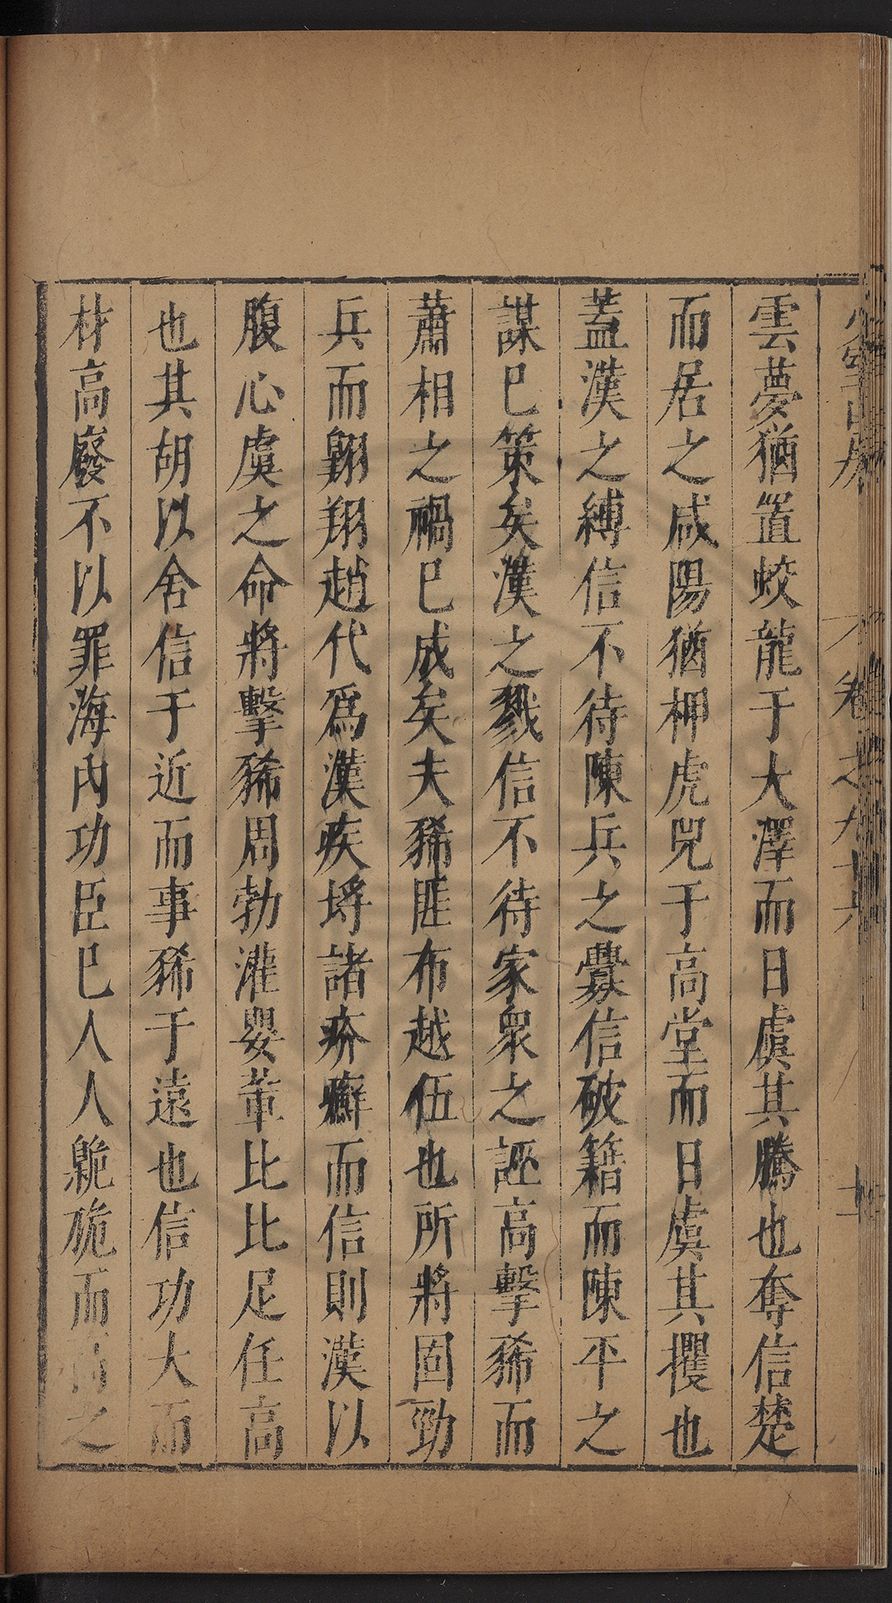 卷之九十六
雲夢猶置蛟龍于大澤而日虞其騰也奪信楚
而居之咸陽猶柙虎兕于高堂而日虞其攫也
蓋漢之縛信不待陳兵之釁信破籍而陳平之
謀巳策矣漢之戮信不待家衆之誣高擊豨而
蕭相之禍巳成矣夫豨匪布越伍也所將固勁
兵而翺翔趙代爲漢疾埓諸疥癬而信則漢以
腹心虞之命將擊豨周勃灌嬰軰比比足任高
也其胡以舍信于近而事豨于遠也信功大而
材高廢不以罪海内功臣巳人人臲硊而信之